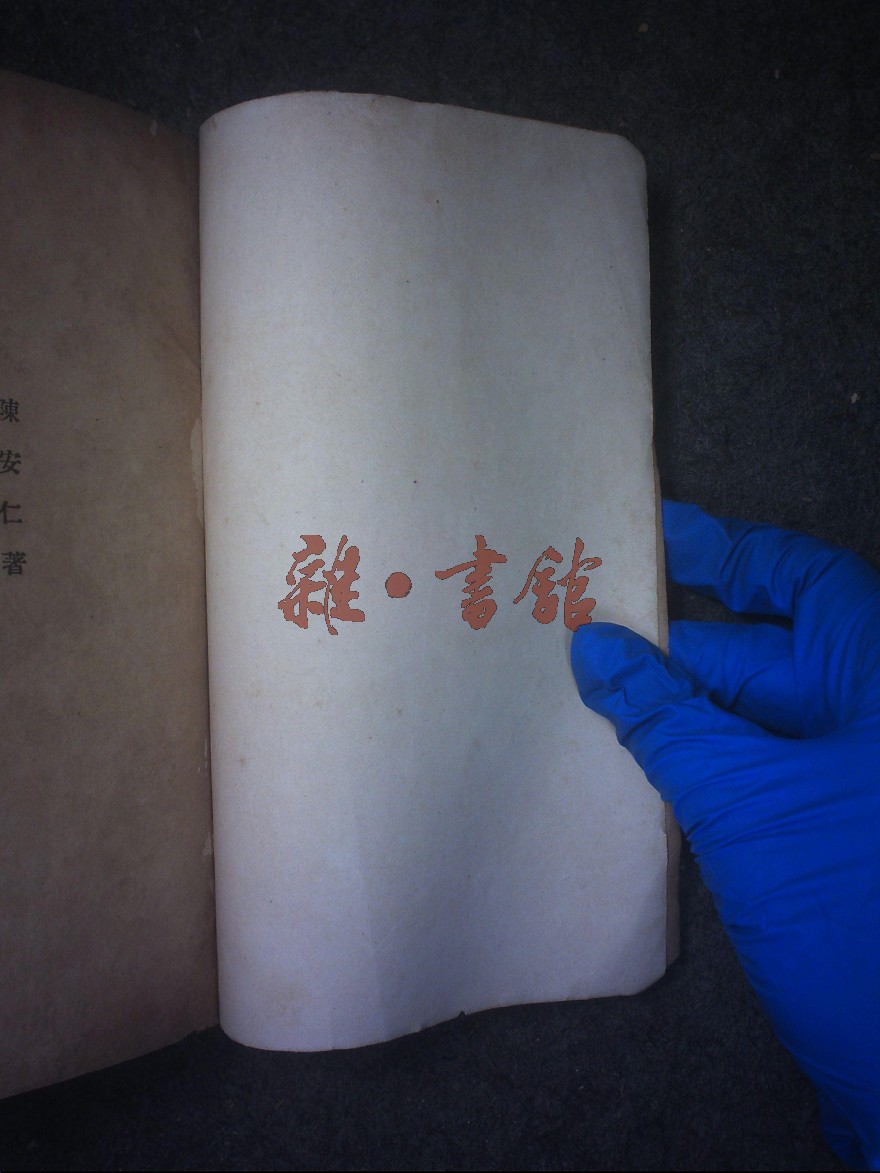 陳安仁著
雜·書館